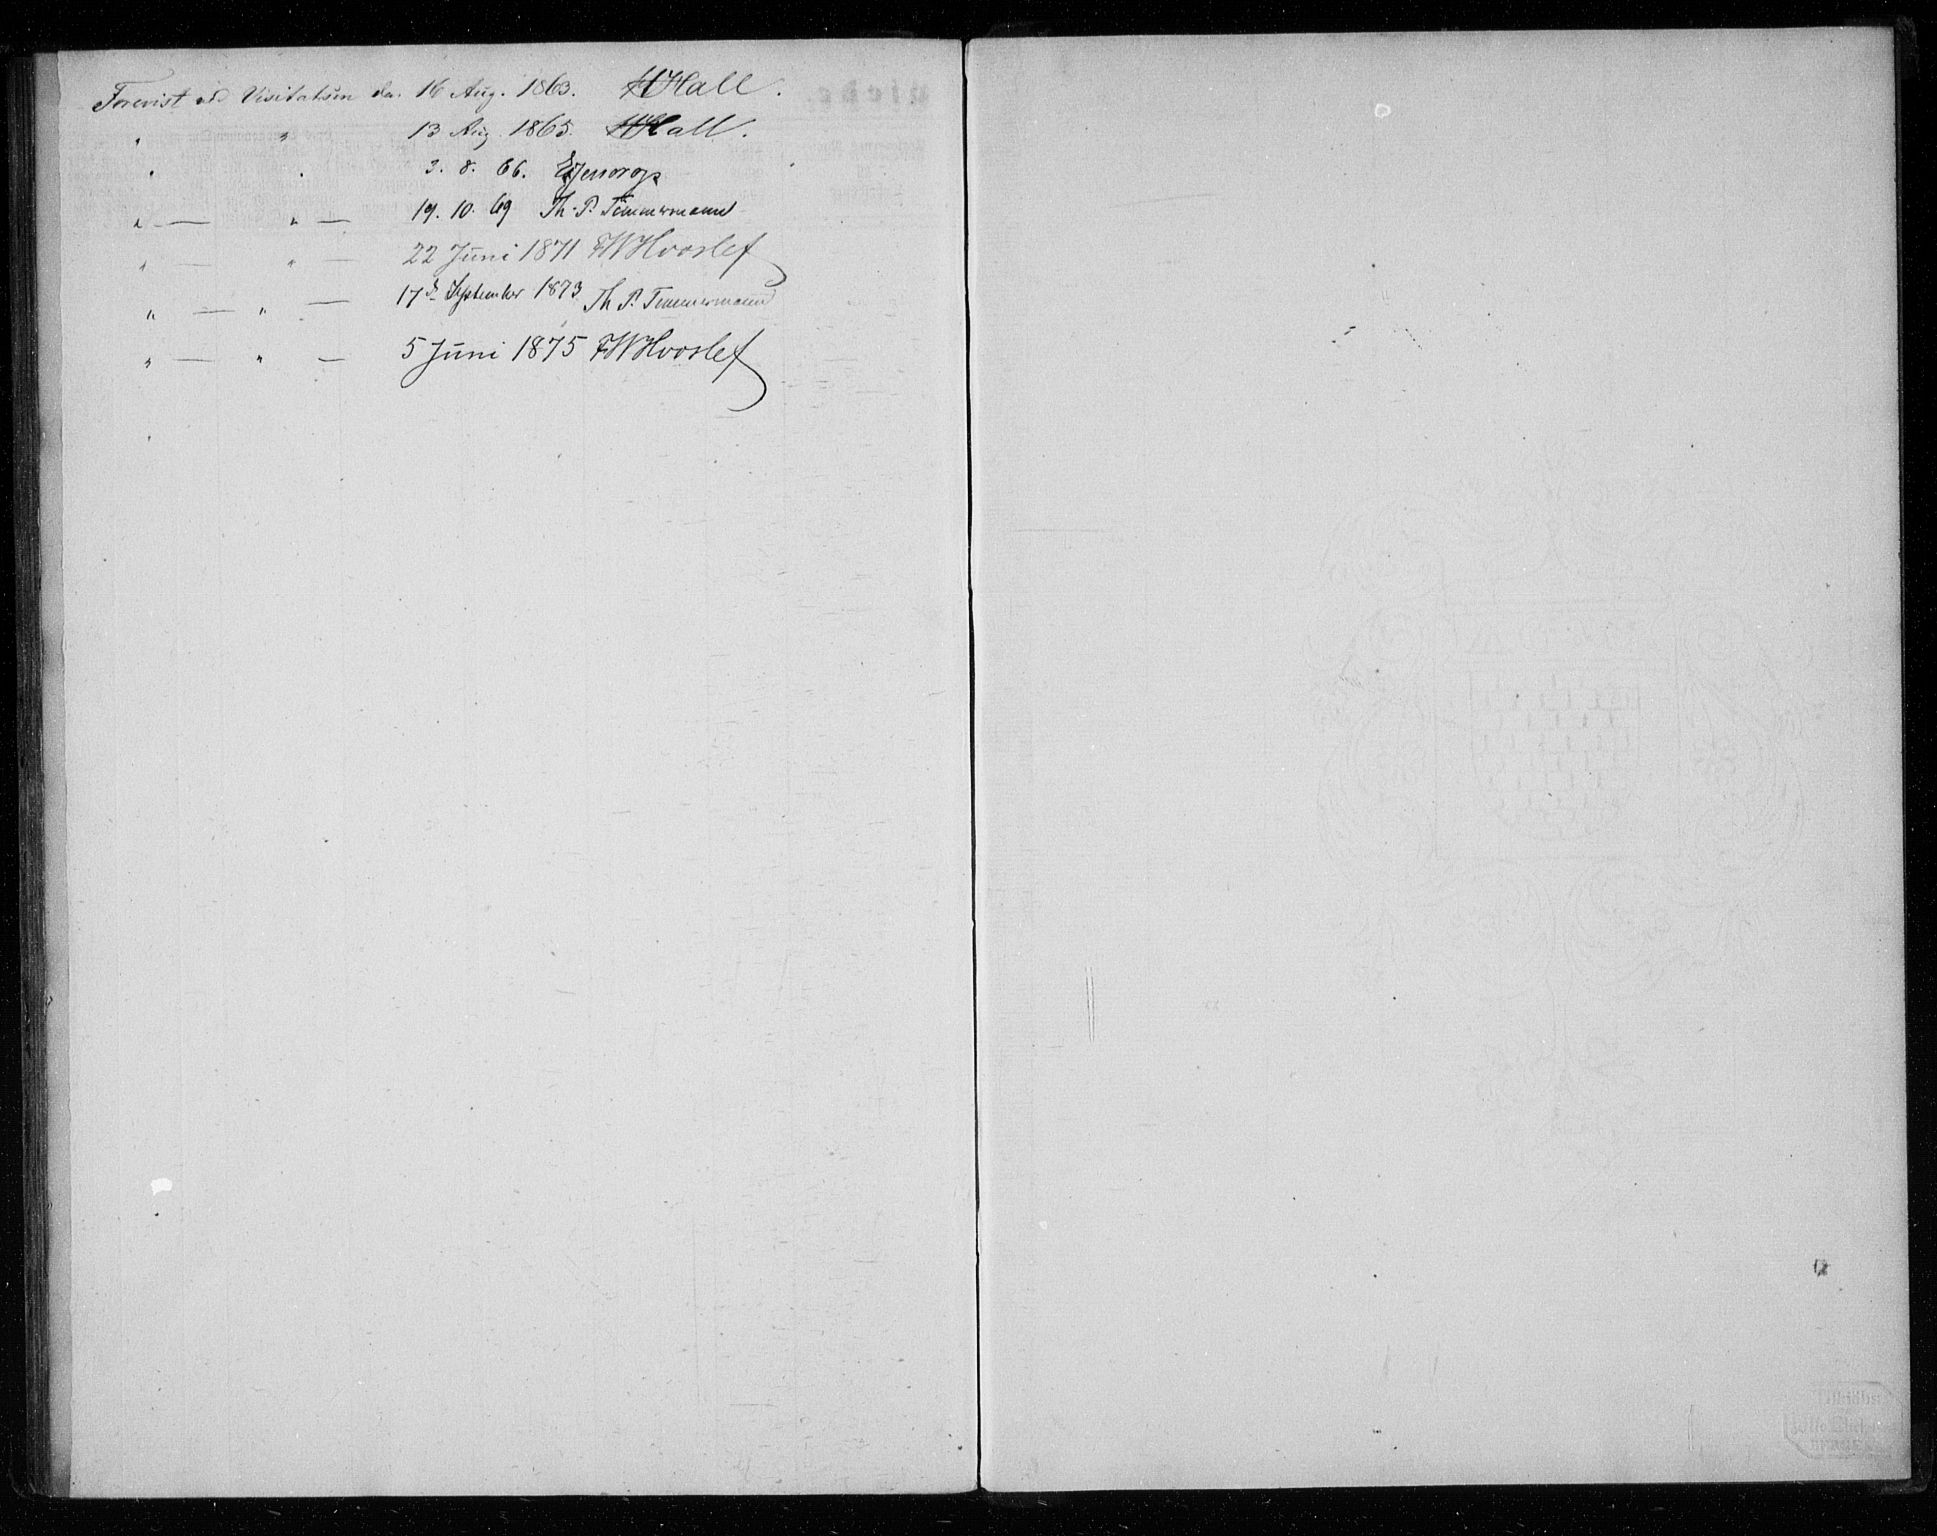 Forevist ved Visitatsen den 16 Aug. 1863. Hall.
" " 13 Aug. 1865. Hall.
" " 3. 8. 66.
" — " — 19. 10. 69 Th. P. Timmermann
" — " — 22 Juni 1871 FWHvoslef
" — " — 17d September 1873 Th P. Timmermann
" — " — 5 Juni 1875 FWHvoslef